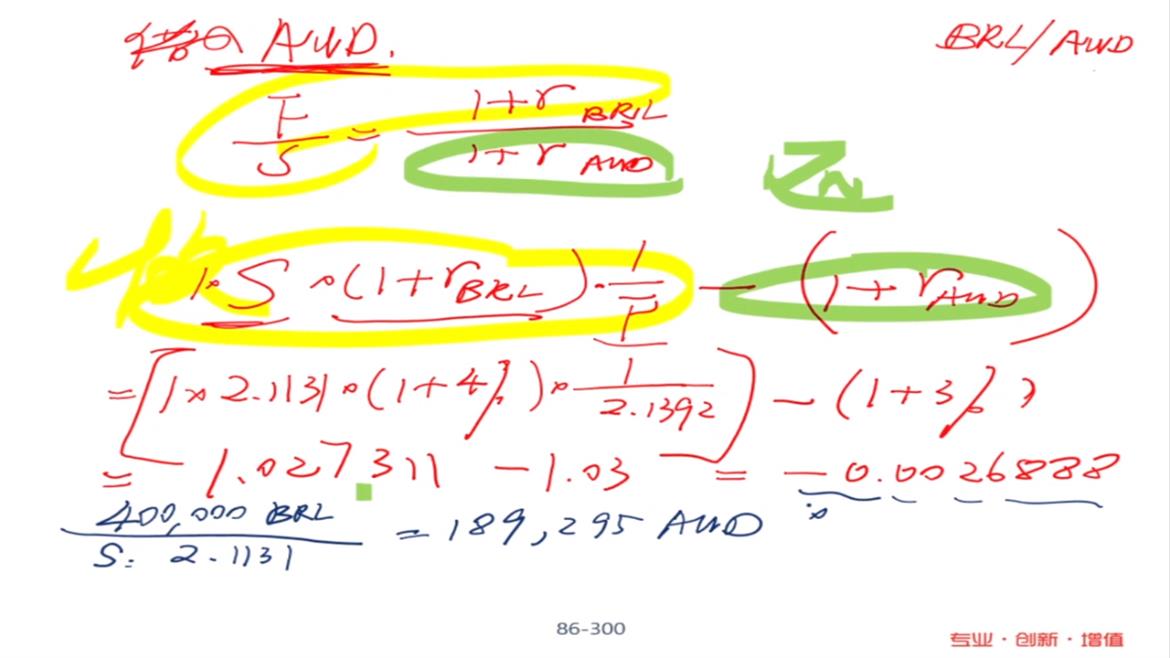 AUD. BRL/AUD
F/S = (1+r BRL)/(1+r AUD)
1·S·(1+r BRL)·1/F − (1+r AUD)
= [1×2.1131·(1+4%)·1/2.1392] − (1+3%)
= 1.027311 − 1.03 = −0.0026888
400,000 BRL / S: 2.1131 = 189,295 AUD
86-300
专业·创新·增值